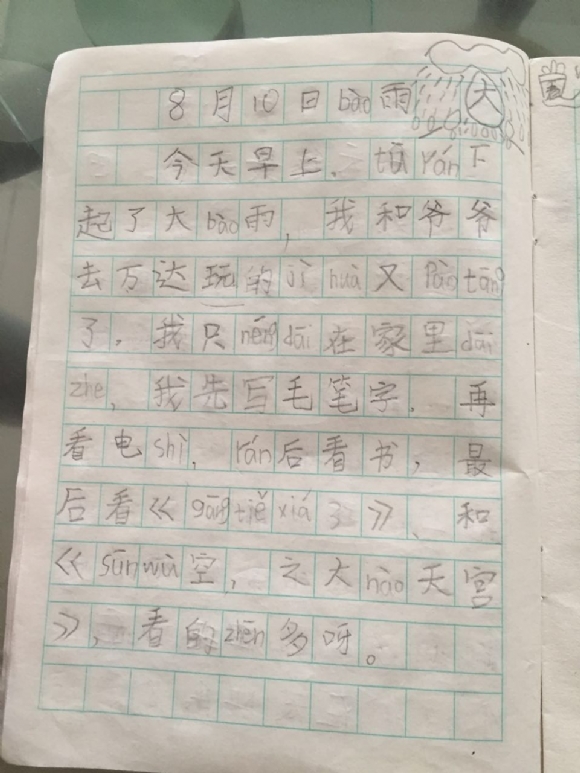 8月10日bào雨大
今天早上，tū rán下
起了大bào雨，我和爷爷
去万达玩的jì huà又pào tāng
了，我只néng dāi在家里dāi
zhe，我先写毛笔字，再
看电shì，rán后看书，最
后看《gāng tiě xiá 3》、和
《sūn wù空，之大nào天宫
》，看的zhēn多呀。